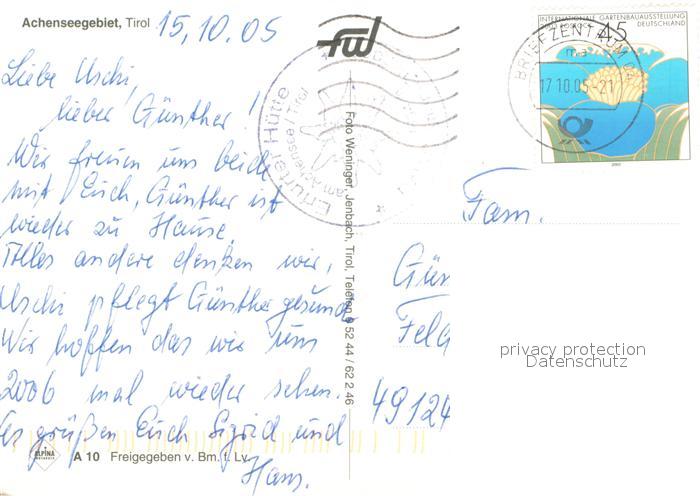 Achenseegebiet, Tirol
15.10.05
Liebe Uschi,
lieber Günther!
Wir freuen uns beide
mit Euch, Günther ist
wieder zu Hause.
Alles andere denken wir,
Uschi pflegt Günther gesund
Wir hoffen das wir uns
2006 mal wieder sehen.
Es grüßen Euch Sigrid und
Hans.
ALPINA
A 10 Freigegeben v. Bm. f. Lv.
fwd
Erfurter Hütte
am Achensee / Tirol
Foto Weninger, Jenbach, Tirol, Telefon 0 52 44 / 62 2 46
INTERNATIONALE GARTENBAUAUSSTELLUNG
ROSTOCK
DEUTSCHLAND
45
BRIEFZENTRUM
17.10.05-21
2003
Fam.
Gün
Feld
49124
privacy protection
Datenschutz